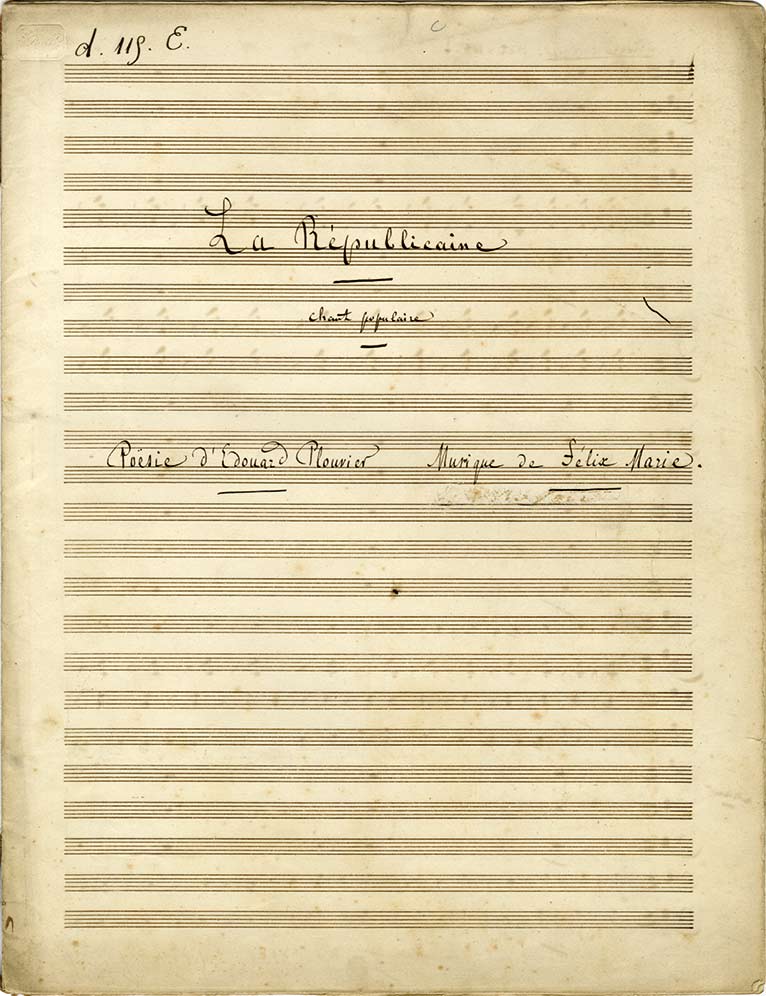 d. 119. E.
La Républicaine
chant populaire
Poësie d'Edouard Plouvier Musique de Félix Marie.